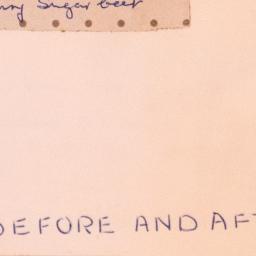 Sugar beet
BEFORE AND AFT